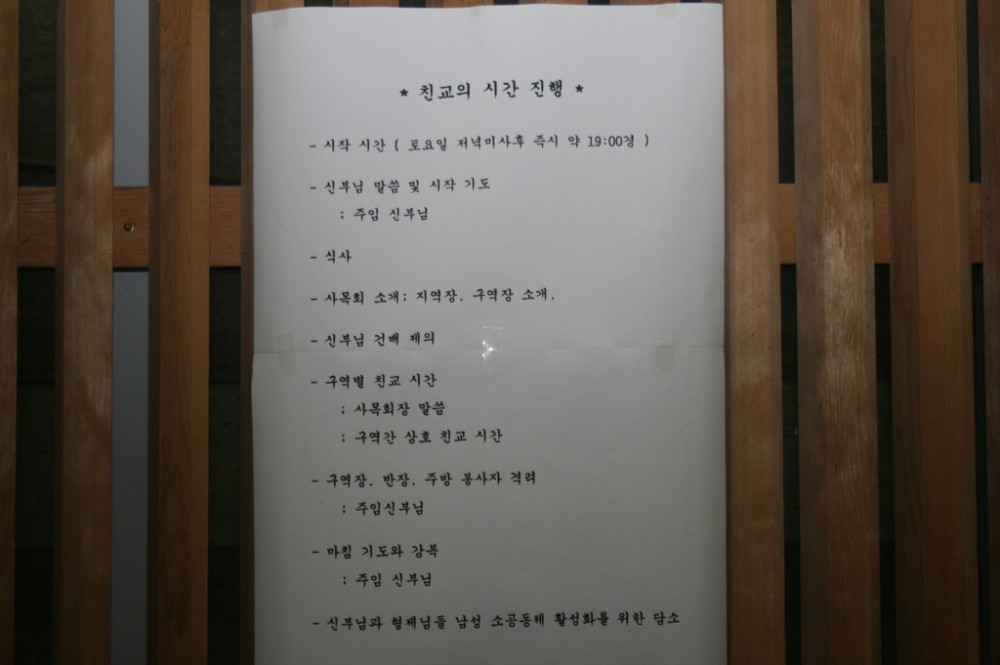 * 친교의 시간 진행 *
- 시작 시간 ( 토요일 저녁미사후 즉시 약 19:00경 )
- 신부님 말씀 및 시작 기도
: 주임 신부님
- 식사
- 사목회 소개; 지역장. 구역장 소개.
- 신부님 건배 제의
- 구역별 친교 시간
: 사목회장 말씀
: 구역간 상호 친교 시간
- 구역장. 반장. 주방 봉사자 격려
: 주임신부님
- 마침 기도와 강복
: 주임 신부님
- 신부님과 형제님들 남성 소공동체 활성화를 위한 담소